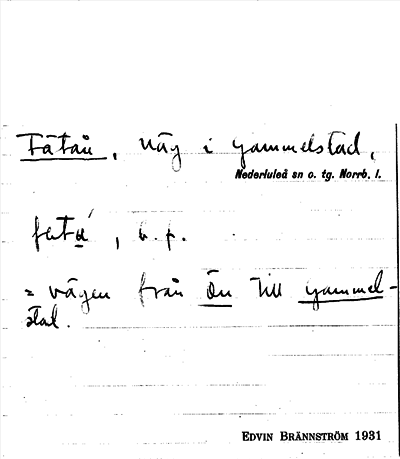 Fätån, väg i Gammelstad,
Nederluleå sn o. tg. Norrb. l.
, b. f.
= vägen från Ön till Gammel-
stad.
EDVIN BRÄNNSTRÖM 1931